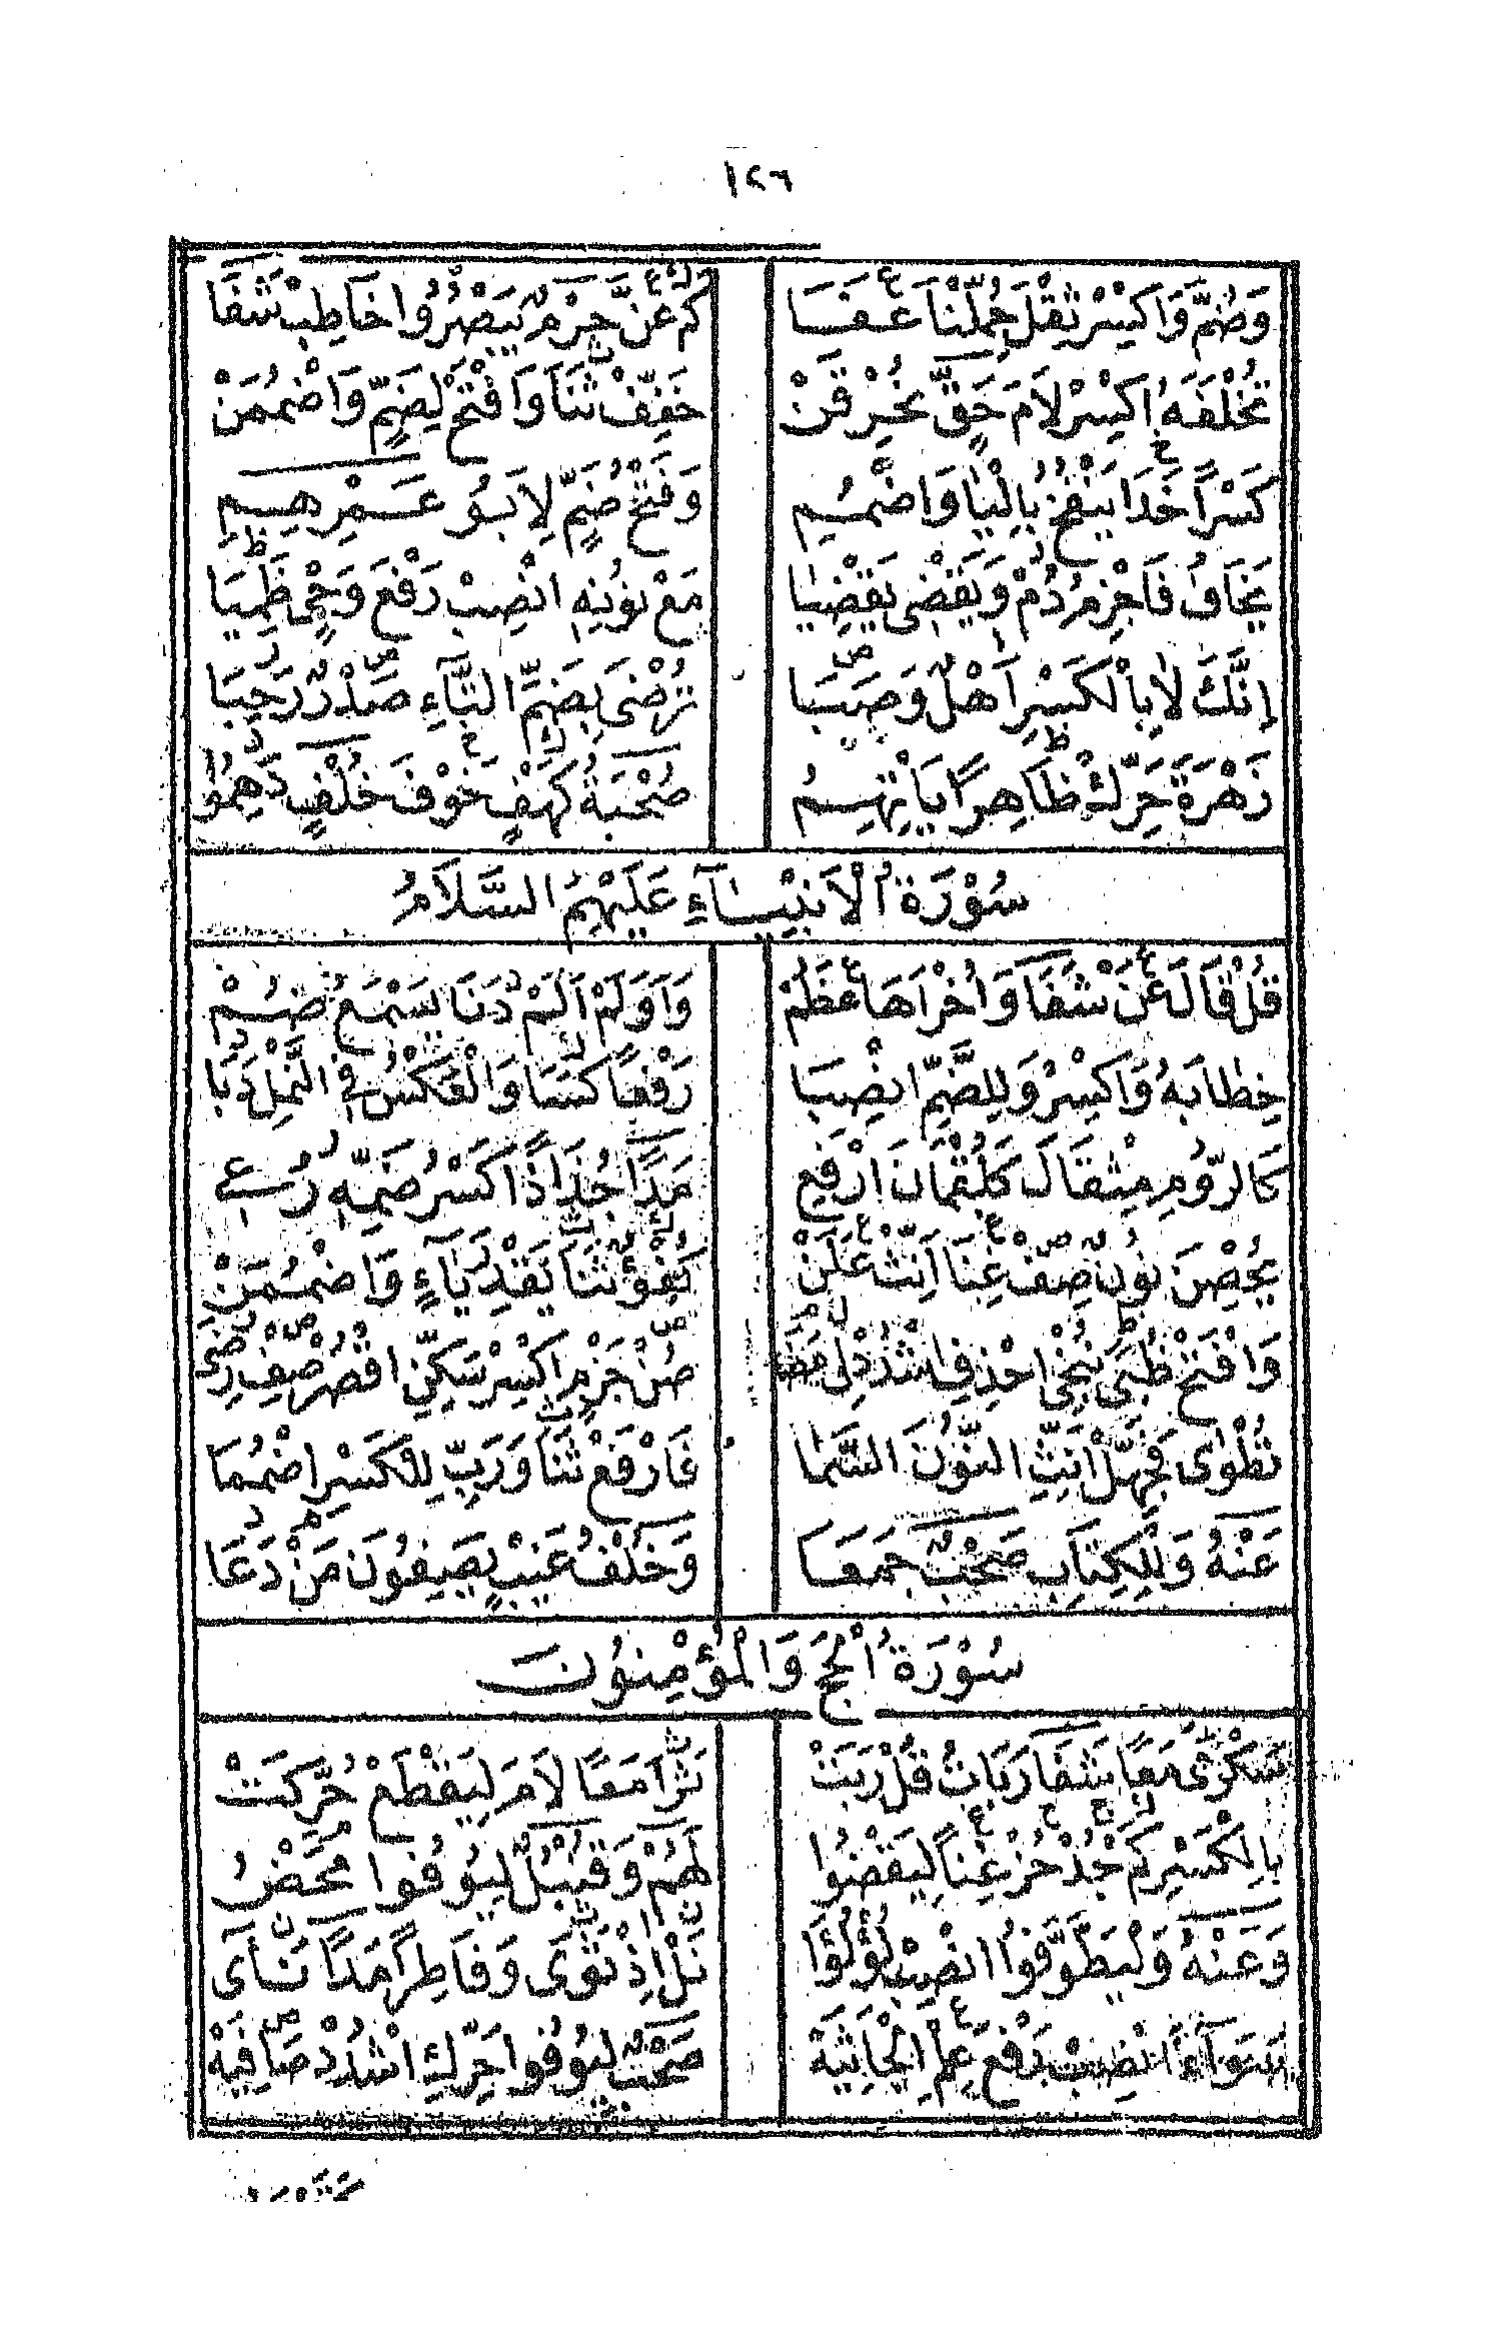 ١٢٦
وَضُمَّ وَاكْسِرْ ثِقْلَ حُمِّلْنَا عَفَا كَمْ عَنَّ حِرْمٌ يَبْصُرُوا خَاطِبْ شَفَا
تُخْلَفَهُ اكْسِرْ لَامَ حَقٍّ نُحْرِقَنْ خَفِّفْ ثَنَا وَافْتَحْ لِضَمٍّ وَاضْمُمَنْ
كَسْرًا خَلَا يَنْفُخُ بِالْيَا وَاضْمُمِ وَفَتْحُ ضَمٍّ لَا أَبُو عَمْرِهِمِ
يَخَافُ فَاجْزِمْ دُمْ وَيُقْضَى يَقْضِيَا مَعْ نُونِهِ انْصِبْ رَفْعَ وَحْيٍ ظَمِيَا
إِنَّكَ لَا بِالْكَسْرِ آهِلٌ وَصَبَا تُرْضَى بِضَمِّ التَّاءِ صَدْرٌ رَحُبَا
زَهْرَةَ حَرِّكْ ظَاهِرًا يَأْتِهِمُ صُحْبَةُ كَهْفٍ خَوْفَ خُلْفٍ دَهِمُوا
سُوْرَةُ الْأَنْبِيَآءِ عَلَيْهِمُ السَّلَامُ
قُلْ قَالَ عَنْ شَفَا وَأُخْرَاهَا عَظُمْ وَأَوَلَمْ أَلَمْ دَنَا يَسْمَعُ ضُمْ
خِطَابَهُ وَاكْسِرْ وَلِلضَّمِّ انْصِبَا رَفْعًا كَسَا وَالْعَكْسُ فِي النَّمْلِ دَبَا
كَالرُّومِ مِثْقَالَ كَلُقْمَانَ ارْفَعِ مَدًا جُذَاذًا كَسْرُ ضَمِّهِ رُعِي
يُحْصِنَ نُونٌ صِفْ غِنَا أَنِّثْ عَلَنْ كُفْؤٌ ثَنَا يَقْدِرَ يَآءٍ وَاضْمُمَنْ
وَافْتَحْ ظُبَى نُنْجِي احْذِفِ اشْدُدْ لِي مَضَى صُنْ حِرْمَ اكْسِرْ سَكِّنِ اقْصُرْ صِفْ رِضَى
تُطْوَى فَجَهِّلْ أَنِّثِ النُّونَ السَّمَا فَارْفَعْ ثَنَا وَرَبِّ لِلْكَسْرِ اضْمُمَا
عَنْهُ وَلِلْكِتَابِ صَحْبٌ جَمَعَا وَخُلْفُ غَيْبٍ يَصِفُونَ مَنْ دَعَا
سُوْرَةُ الْحَجِّ وَالْمُؤْمِنُونَ
سَكْرَى مَعًا شَفَا رَبَأَتْ قُلْ رَبَتْ ثَرَا مَعًا لَامَ لِيَقْطَعْ حُرِّكَتْ
بِالْكَسْرِ كَمْ جُدْ حُزْ غِنًا لِيَقْضُوا لَهُمْ وَقُنْبُلٌ لِيُوفُوا مَحْضُ
وَعَنْهُ وَلْيَطَّوَّفُوا انْصِبْ لُؤْلُؤَا نَلْ إِذْ ثَوَى وَفَاطِرًا مَدًا نَآى
سَوَآءً انْصِبْ رَفْعَ عِلْمِ الْجَاثِيَهْ صَحْبٌ لِيُوفُوا حَرِّكِ اشْدُدْ صَافِيَهْ